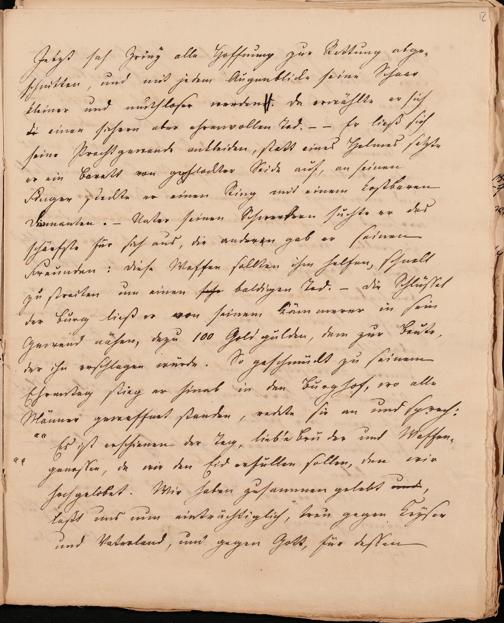 Jetzt sah Zriny alle Hoffnung zur Rettung abge-
schnitten, und mit jedem Augenblicke seine Schaar
kleiner und muthloser werden. Da erwählte er sich
einen sichern aber ehrenvollen Tod. – – Er ließ sich
seine Prachtgewande ankleiden, statt eines Helmes setzte
er ein Barett von Seide auf, an seinen
Finger steckte er einen Ring mit einem kostbaren
Demanten. – Unter seinen Schwertern suchte er das
schärfste für sich aus, die anderen gab er seinen
Freunden: diese Waffen sollten ihm helfen, schnell
zu streiten um einen baldigen Tod. – Die Schlüssel
der Burg ließ er von seinem Kämmerer in sein
Gewand nähen, dazu 100 Goldgülden, dem zur Beute,
der ihn erschlagen würde. So geschmückt zu seinem
Ehrentag stieg er hinab in den Burghof, wo alle
Männer gewaffnet standen, redete sie an und sprach:
"Es ist erschienen der Tag, liebe Brüder und Waffen-
genossen, da wir den Eid erfüllen sollen, den wir
hochgelobet. Wir haben zusammen gelebt und,
laßt uns nun einträchtiglich, treu gegen Kayser
und Vaterland, und gegen Gott, für dessen